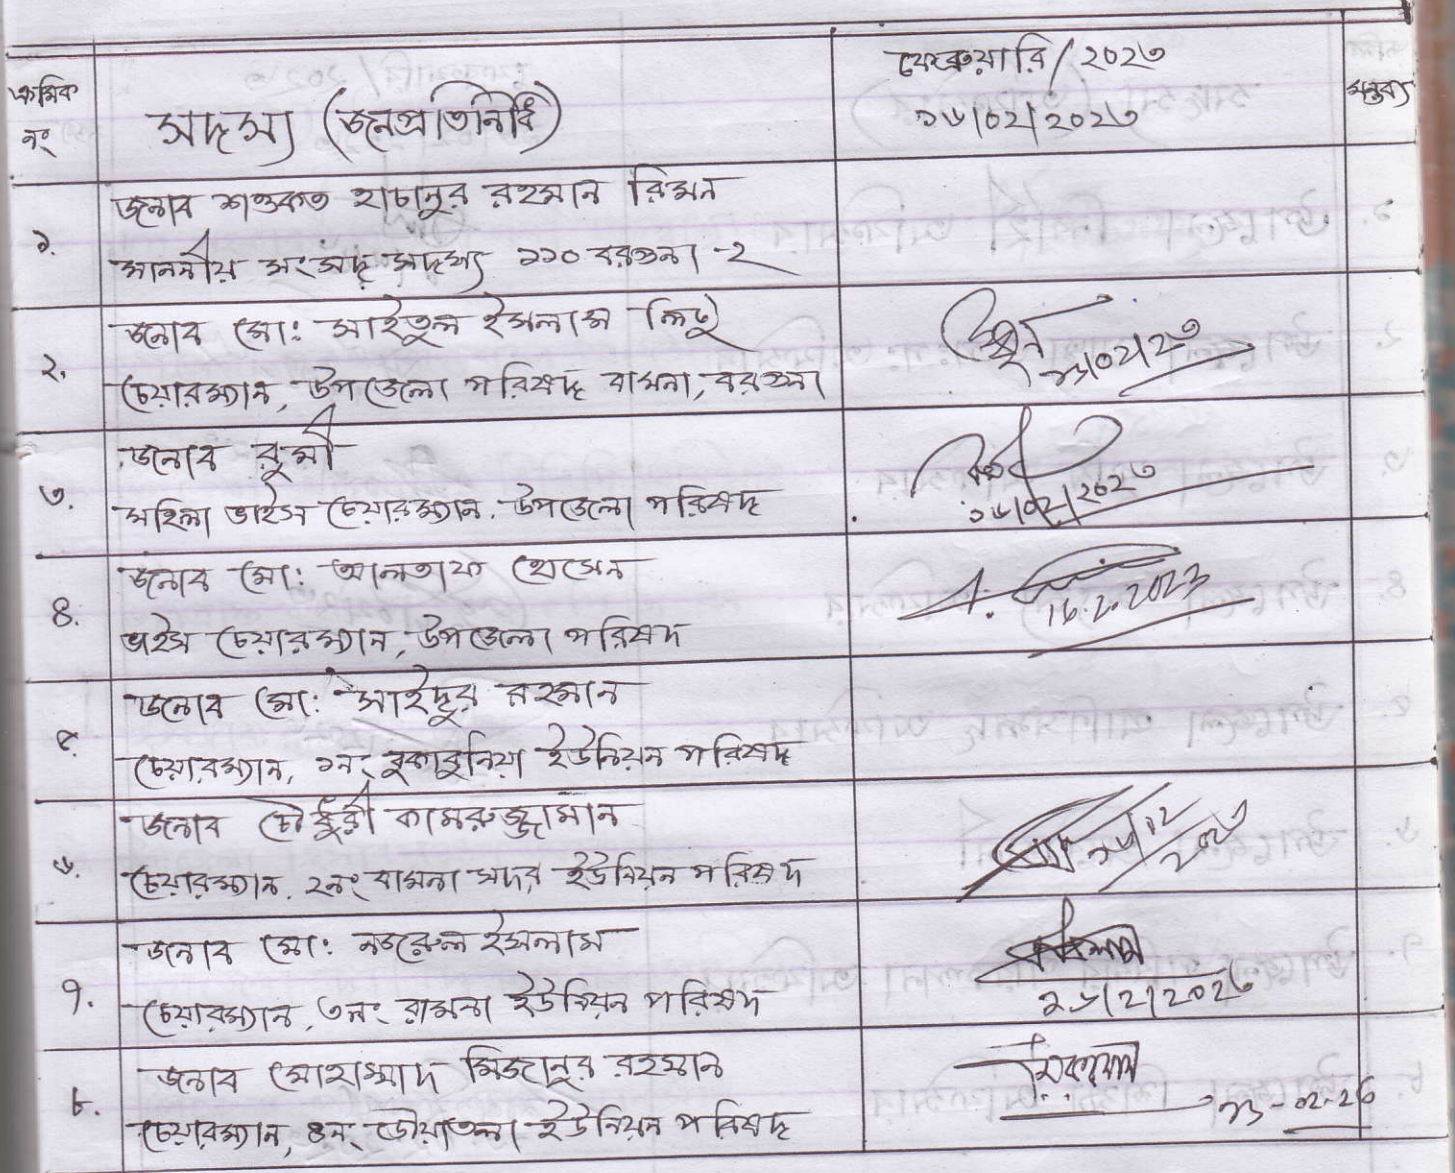 ক্রমিক নং
সদস্য (জনপ্রতিনিধি)
ফেব্রুয়ারি/২০২৩
১৬/০২/২০২৩
মন্তব্য
১. জনাব শওকত হাচানুর রহমান রিমন
মাননীয় সংসদ সদস্য ১১০ বরগুনা -২
২. জনাব মো: সাইতুল ইসলাম লিটু
চেয়ারম্যান, উপজেলা পরিষদ বামনা, বরগুনা
১৬/০২/২৩
৩. জনাব রুমী
মহিলা ভাইস চেয়ারম্যান, উপজেলা পরিষদ
১৬/০২/২০২৩
৪. জনাব মো: আলতাফ হোসেন
ভাইস চেয়ারম্যান, উপজেলা পরিষদ
A.
16.2.2023
৫. জনাব মো: সাইদুর রহমান
চেয়ারম্যান, ১নং বুকাবুনিয়া ইউনিয়ন পরিষদ
৬. জনাব চৌধুরী কামরুজ্জামান
চেয়ারম্যান, ২নং বামনা সদর ইউনিয়ন পরিষদ
১৬/২/২০২৩
৭. জনাব মো: নজরুল ইসলাম
চেয়ারম্যান, ৩নং রামনা ইউনিয়ন পরিষদ
১৬/2/2০2৩
৮. জনাব মোহাম্মাদ মিজানুর রহমান
চেয়ারম্যান, ৪নং ডৌয়াতলা ইউনিয়ন পরিষদ
১৬-০২-২৩